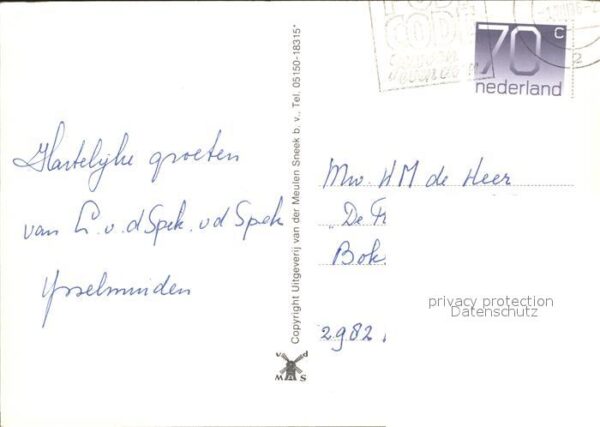 POST
CODE
70 c
nederland
Hartelijke groeten
van L. v. d Spek. vd Spek
IJsselmuiden
Copyright Uitgeverij van der Meulen Sneek b. v., Tel. 05150-18315*
v d
M S
Mw. HM de Heer
"De
Bok
2982
privacy protection
Datenschutz